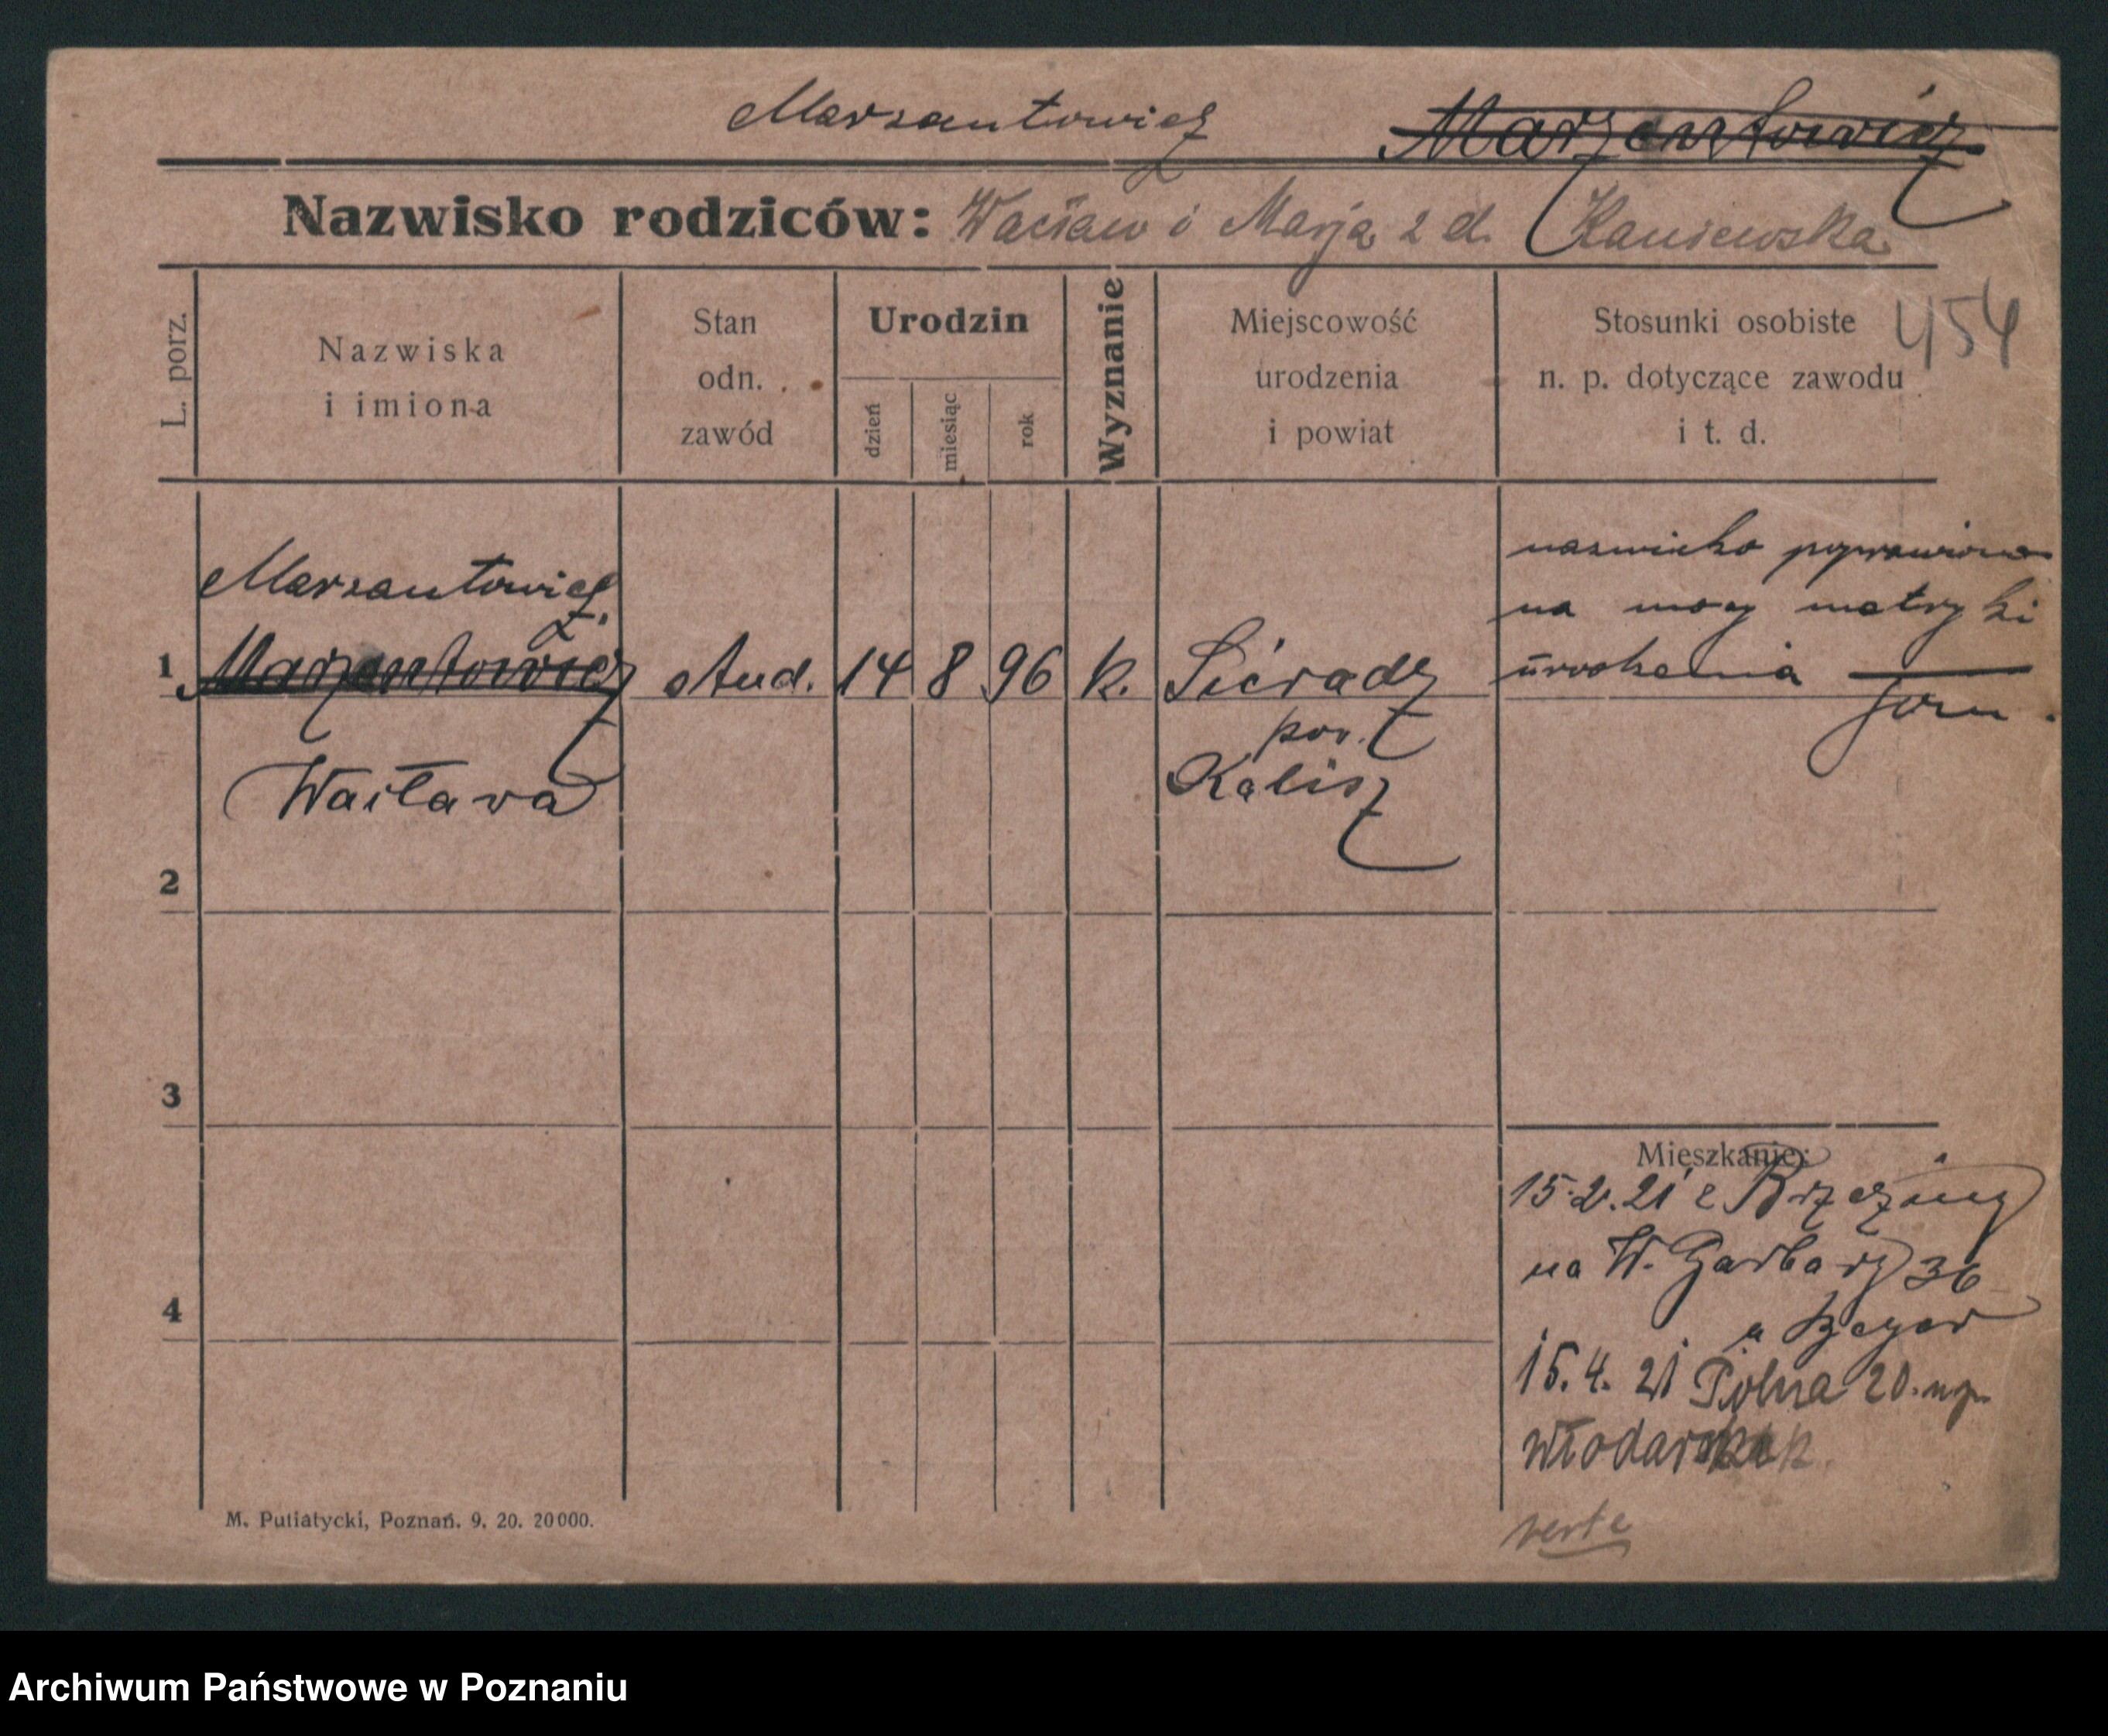 Marzantowicz Marzentowicz
Nazwisko rodziców: Wacław i Marja z d. Kaniewska
454
L. porz.
Nazwiska
i imiona
Stan
odn.
zawód
Urodzin
dzień
miesiąc
rok
Wyznanie
Miejscowość
urodzenia
i powiat
Stosunki osobiste
n. p. dotyczące zawodu
i t. d.
nazwisko poprawiono
na mocy metryki
urodzenia
Marzantowicz
1 Marzentowicz stud. 14 8 96 k. Sieradz
pow.
Wacława Kalisz
2
3
4
Mieszkanie:
15.2.21 z Brzeziny
na W. Garbary 36
u Beyer
15.4.21 Polna 20.
Włodarska
verte
M. Putiatycki, Poznań. 9. 20. 20000.
Archiwum Państwowe w Poznaniu